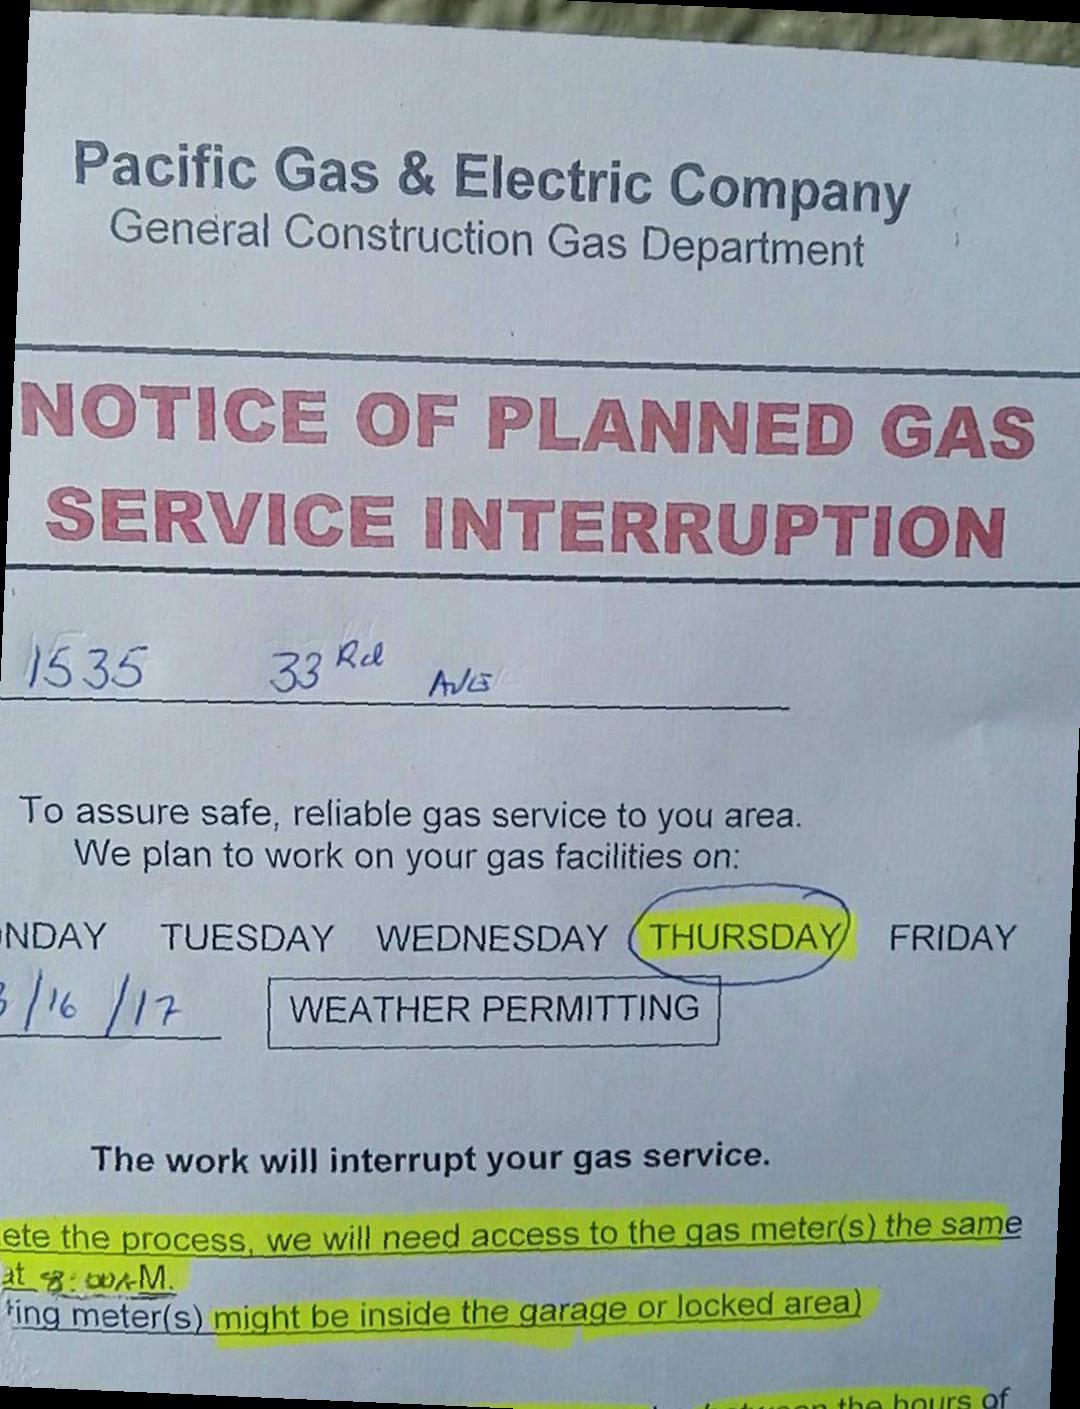 Pacific Gas & Electric Company
General Construction Gas Department
NOTICE OF PLANNED GAS
SERVICE INTERRUPTION
1535 33 Rd AVE
To assure safe, reliable gas service to you area.
We plan to work on your gas facilities on:
NDAY TUESDAY WEDNESDAY THURSDAY FRIDAY
3/16/17 WEATHER PERMITTING
The work will interrupt your gas service.
ete the process, we will need access to the gas meter(s) the same
at 8:00AM.
ting meter(s) might be inside the garage or locked area)
the hours of